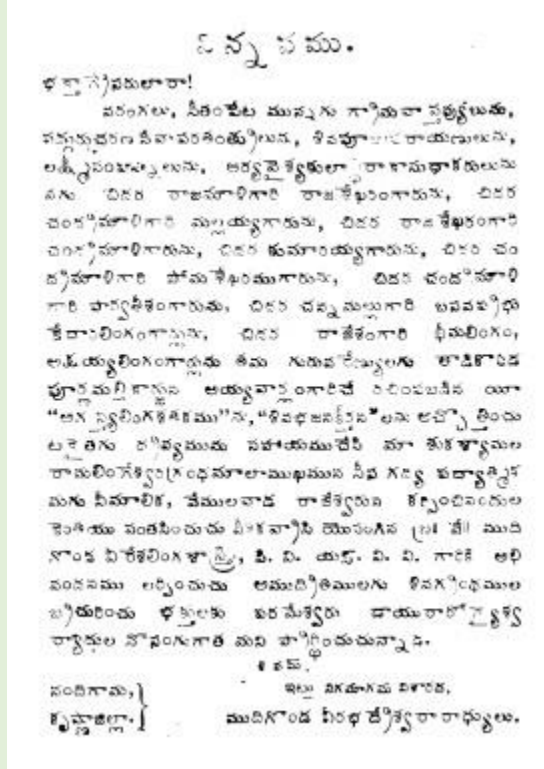 ఓన్నభము.
భక్తాగ్రేసరులారా!
వరంగలు, సీతంపేట మున్నగు గ్రామవాస్తవ్యులును,
సద్గురుచరణ సేవాపరతంత్రులును, శివపూజాపరాయణులును,
లక్ష్మీసంపన్నులును, ఆర్యవైశ్యకులా
నగు చిదర రాజమౌళిగారి రాజశేఖరంగారును, చిదర
చంద్రమౌళిగారి మల్లయ్యగారును, చిదర రాజశేఖరంగారి
చంద్రమౌళిగారును, చిదర కుమారయ్యగారును, చిదర చం
ద్రమౌళిగారి సోమశేఖరముగారును, చిదర చంద్రమౌళి
గారి పార్వతీశంగారును, చిదర చెన్నమల్లుగారి బసవప్రభు
కేదారిలింగంగార్లును, చిదర రాజేశంగారి భీమలింగం,
గార్లును తమ గురువరేణ్యులగు తాడికొండ
పూర్ణమల్లికార్జున అయ్యవార్లంగారిచే రచింపబడిన యీ
"అగస్త్యలింగశతకము"ను, "శివభజనకీర్తన"లను అచ్చొత్తించు
టకై తగు ద్రవ్యమును సహాయముచేసి మా శుకశ్యామల
రామలింగేశ్వరగ్రంథమాలాముఖమున సీస గద్య పద్యాత్మిక
మగు పీమాలిక, వేములవాడ రాజేశ్వరున కర్పించినందుల
కెంతయు సంతసించుచు పీఠిక వ్రాసి యొసంగిన బ్ర॥ వే॥ ముది
గొండ వీరేశలింగశాస్త్రి, పి. వి. యస్. వి. వి. గారికి అభి
వందనము లర్పించుచు అముద్రితములగు శివగ్రంథముల
బ్రచురించు భక్తులకు పరమేశ్వరు డాయురారోగ్యైశ్వ
ర్యాదుల నొసంగుగాత మని ప్రార్థించుచున్నాడ.
శివమ్.
నందిగామ,
కృష్ణాజిల్లా.
ఇట్లు నిగమాగమ విశారద,
ముదిగొండ వీరభద్రేశ్వరారాధ్యులు.